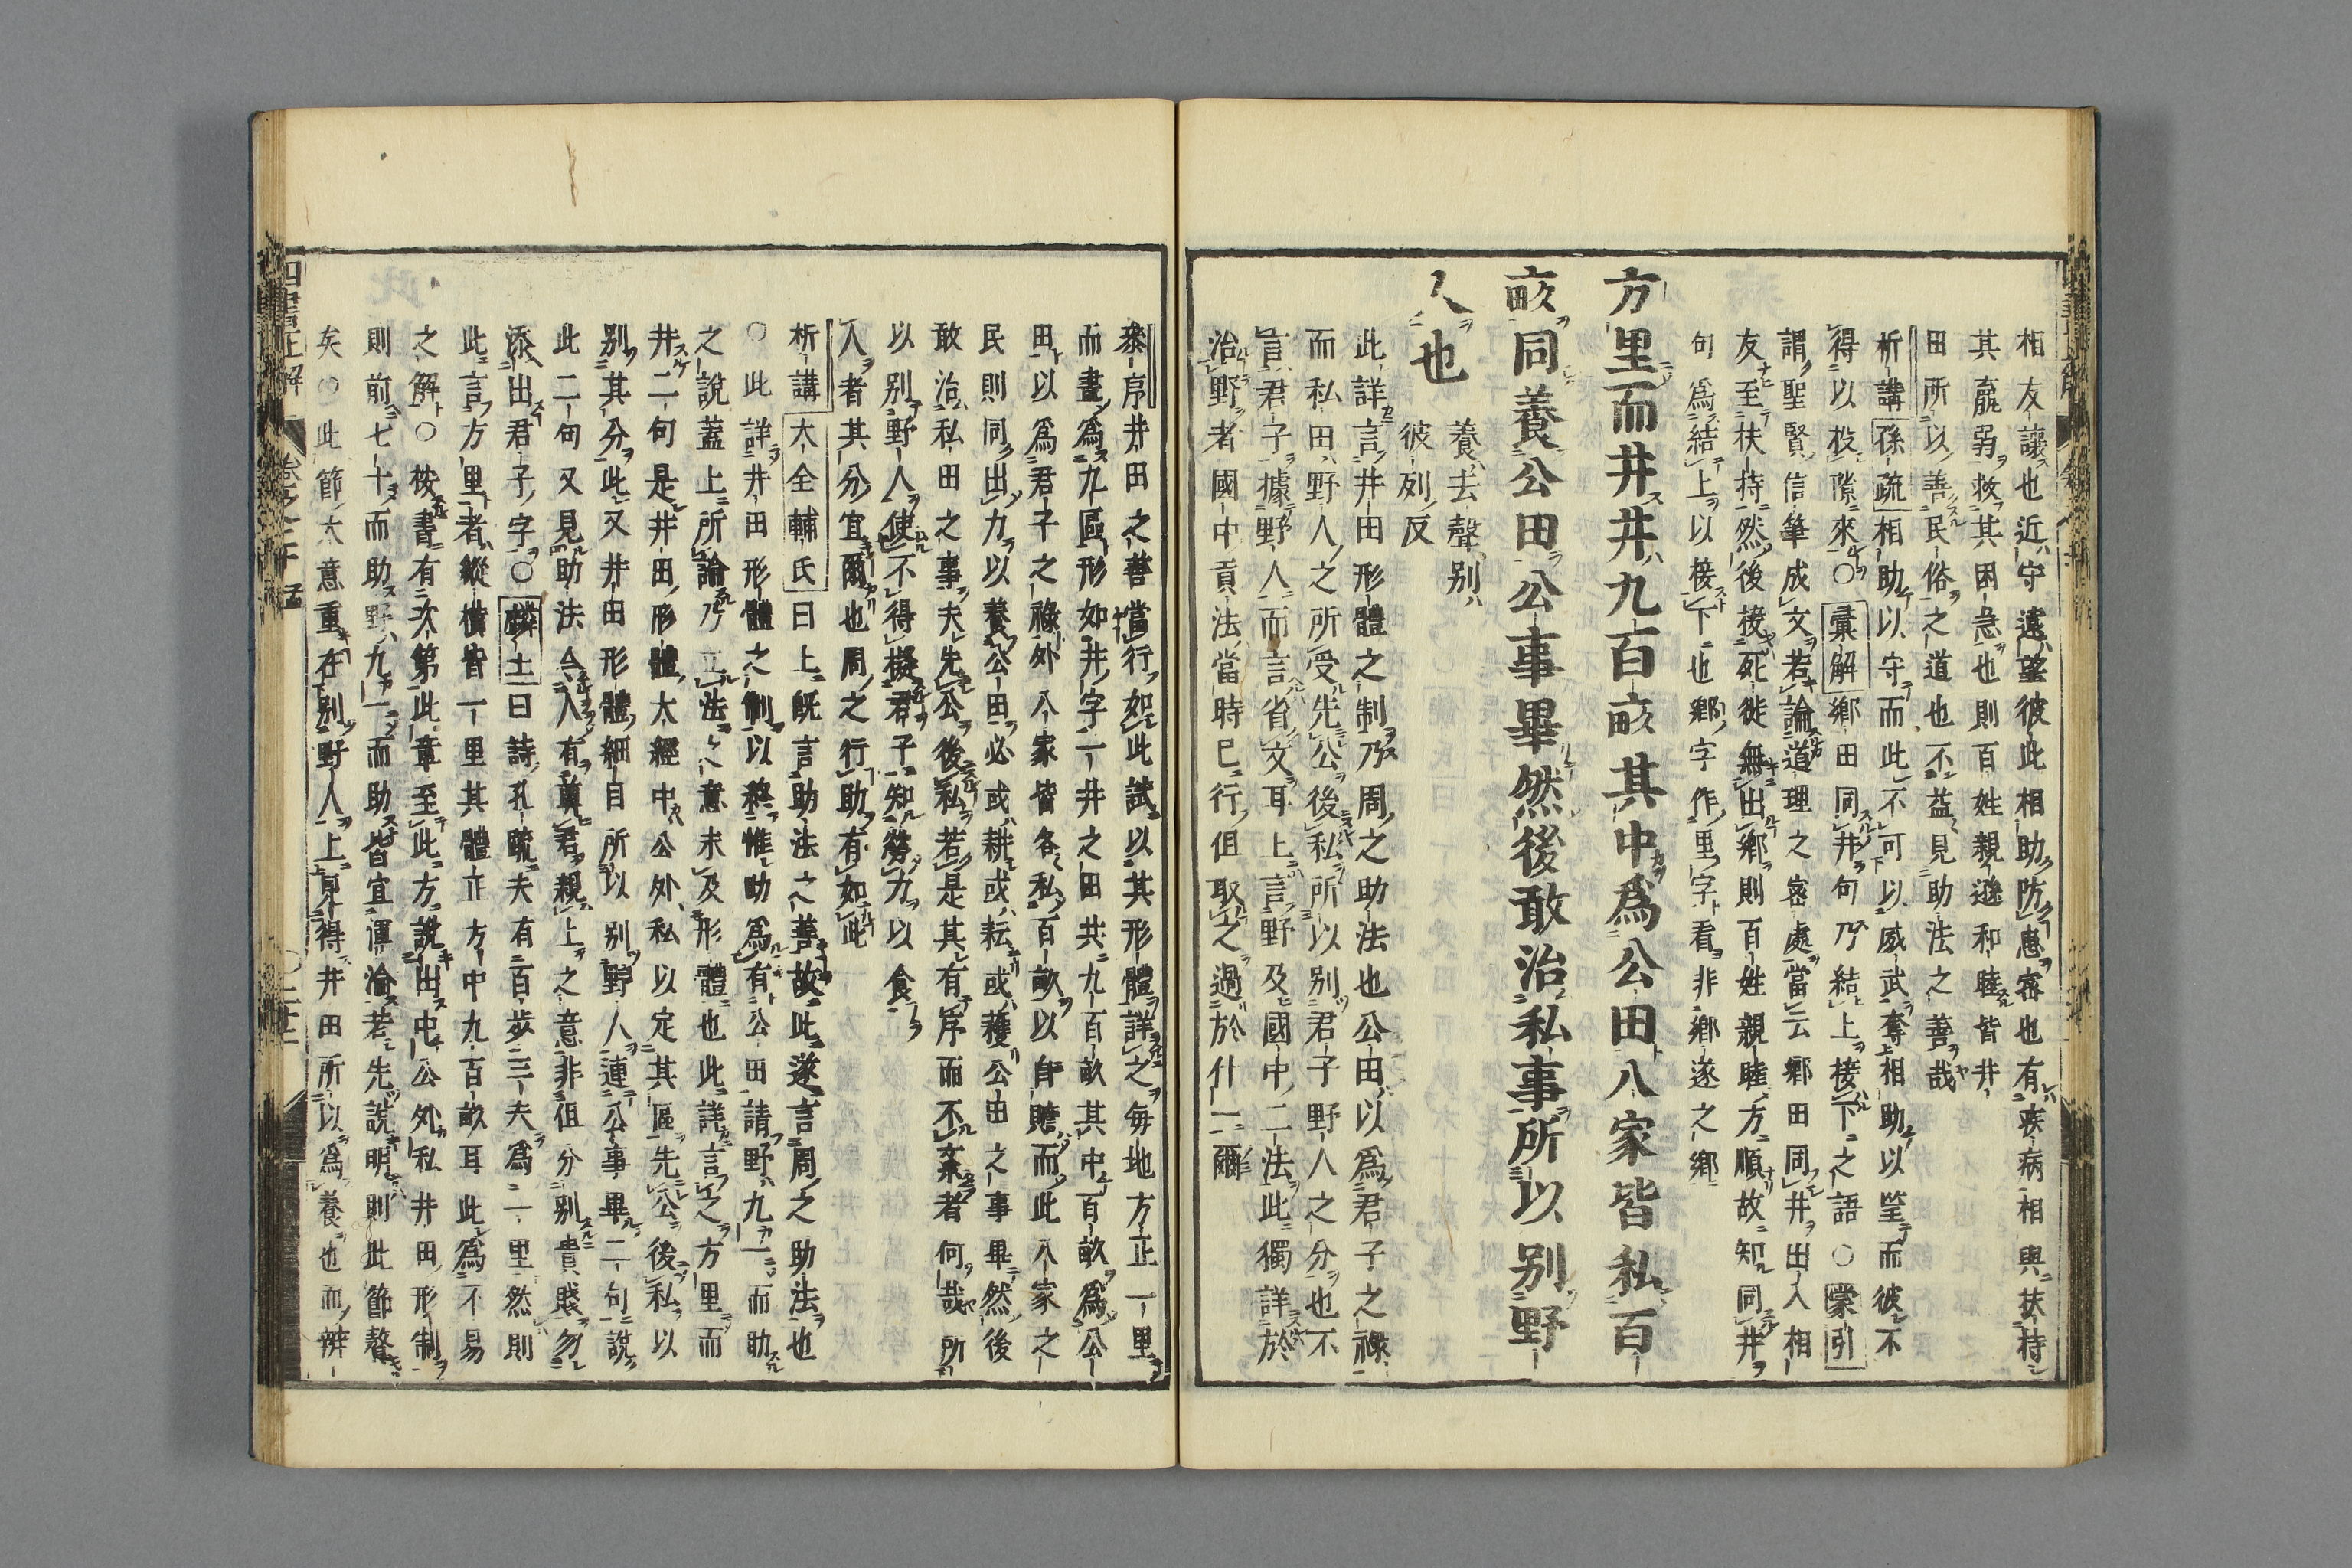 相友讓也近守遠望彼此相助防患密也有疾病相與扶持
其羸弱救其困急也則百姓親遜和睦皆井
田所以善民俗之道也不益見助法之善哉
析講孫疏相助以守而此不可以威武奪相助以望而彼不
得以投隙來○彙解鄉田同井句乃結上接下之語○蒙引
謂聖賢信筆成文若論道理之密處當云鄉田同井出入相
友至扶持然後接死徙無出鄉則百姓親睦方順故知同井
句為結上以接下也鄉字作里字看非鄉遂之鄉
方里而井井九百畝其中為公田八家皆私百
畝同養公田公事畢然後敢治私事所以別野
人也
養去聲別
彼列反
此詳言井田形體之制乃周之助法也公田以為君子之祿
而私田野人之所受先公後私所以別君子野人之分也不
言君子據野人而言省文耳上言野及國中二法此獨詳於
治野者國中貢法當時已行但取之過於什一爾
參序井田之善當行如此試以其形體詳之每地方正一里
而畫為九區形如井字一井之田共九百畝其中百畝為公
田以為君子之祿外八家皆各私百畝以自贍而此八家之
民則同出力以養公田必或耕或耘或穫公田之事畢然後
敢治私田之事夫先公後私若是其有序而不紊者何哉所
以別野人使不得擬君子知勞力以食
人者其分宜爾也周之行助有如此
析講大全輔氏曰上既言助法之善故此遂言周之助法也
○此詳井田形體之制以終惟助為有公田請野九一而助
之說蓋上所論乃立法之意未及形體也此詳言之方里而
井二句是井田形體大經中公外私以定其區先公後私以
別其分此又井田形體細目所以別野人連公事畢二句說
此二句又見助法合人有冀君親上之意非但分別貴賤勿
添出君子字○麟士曰詩孔疏夫有百步三夫為一里然則
此言方里者縱橫皆一里其體立方中九百畝耳此為不易
之解○按書有次第此章至此方說出中公外私井田形制
則前七十而助野九一而助皆宜渾淪若先說明則此節聱
矣○此節大意重在別野人上見得井田所以為養也而辨
四書正解
卷之二十 孟